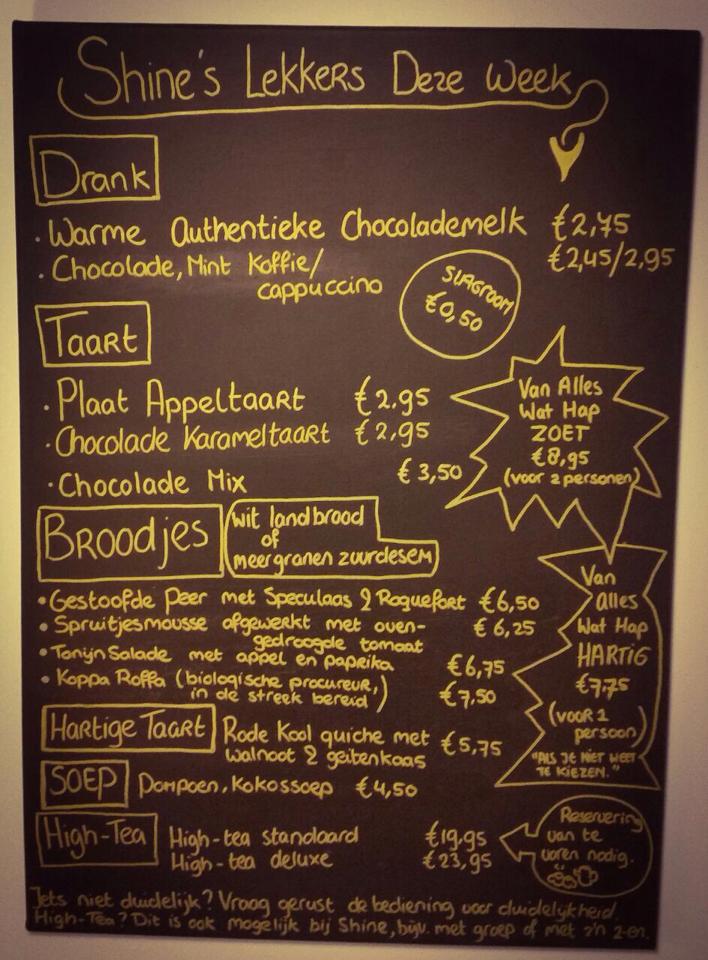 Shine's Lekkers Deze Week
Drank
· Warme Authentieke Chocolademelk €2,75
· Chocolade, Mint Koffie/ €2,45/2,95
cappuccino
SLAGROOM
€0,50
Taart
· Plaat Appeltaart €2.95
· Chocolade Karameltaart €2,95
· Chocolade Mix €3,50
Van Alles
Wat Hap
ZOET
€8,95
(voor 2 personen)
Broodjes
wit landbrood
of
meergranen zuurdesem
• Gestoofde Peer met Speculaas & Roquefort €6,50
• Spruitjesmousse afgewerkt met oven- €6,25
gedroogde tomaat
• Tonijn Salade met appel en paprika €6,75
• Koppa Roffa (biologische procureur,
in de streek bereid) €7,50
Van
alles
Wat Hap
HARTIG
€7,75
(voor 1
persoon)
"ALS JE NIET WEET
TE KIEZEN."
Hartige Taart
Rode Kool quiche met
walnoot & geitenkaas €5,75
SOEP
Pompoen, Kokossoep €4,50
High-Tea
High-tea standaard €19,95
High-tea deluxe €23,95
Reservering
van te
voren nodig.
Iets niet duidelijk? Vraag gerust de bediening voor duidelijkheid.
High-Tea? Dit is ook mogelijk bij Shine, bijv. met groep of met z'n 2-en.